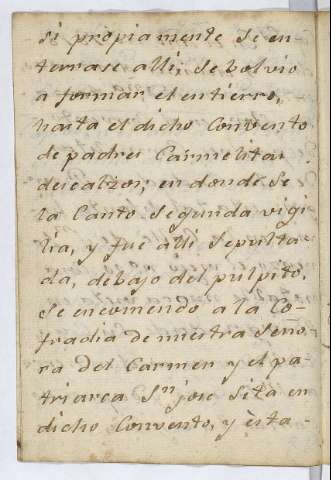 si propiamente se en-
terrase alli; se bolvio
a formar el entierro,
hasta el dicho Convento
de padres Carmelitas
descalzos; en donde se
la Canto segunda vigi
lia, y fue alli sepulta
da, debajo del pulpito,
se encomendo a la Co-
fradia de nuestra Seño-
ra del Carmen y el pa-
triarca Sn jose sita en
dicho Convento, y èsta-